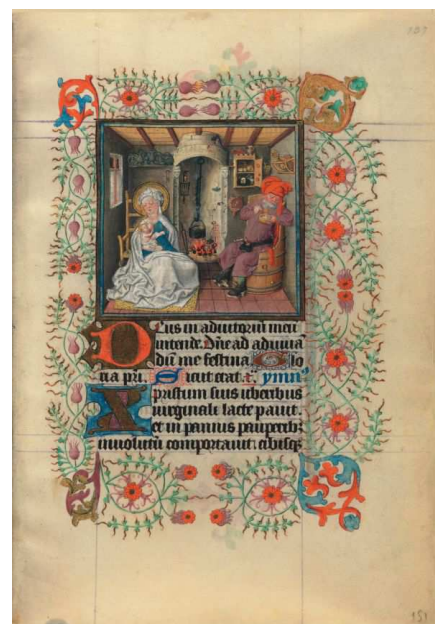 Deus in adiutoriū meū
intende. Dn̄e ad adiuuā
dū me festina. Glo
ria pr̄i. Sicut erat. ymn̄
Xpristum suis uberibus
uirginali lacte pauit.
et in pannis pauperibꝫ
inuolutū comportauit: cibisqꝫ
151